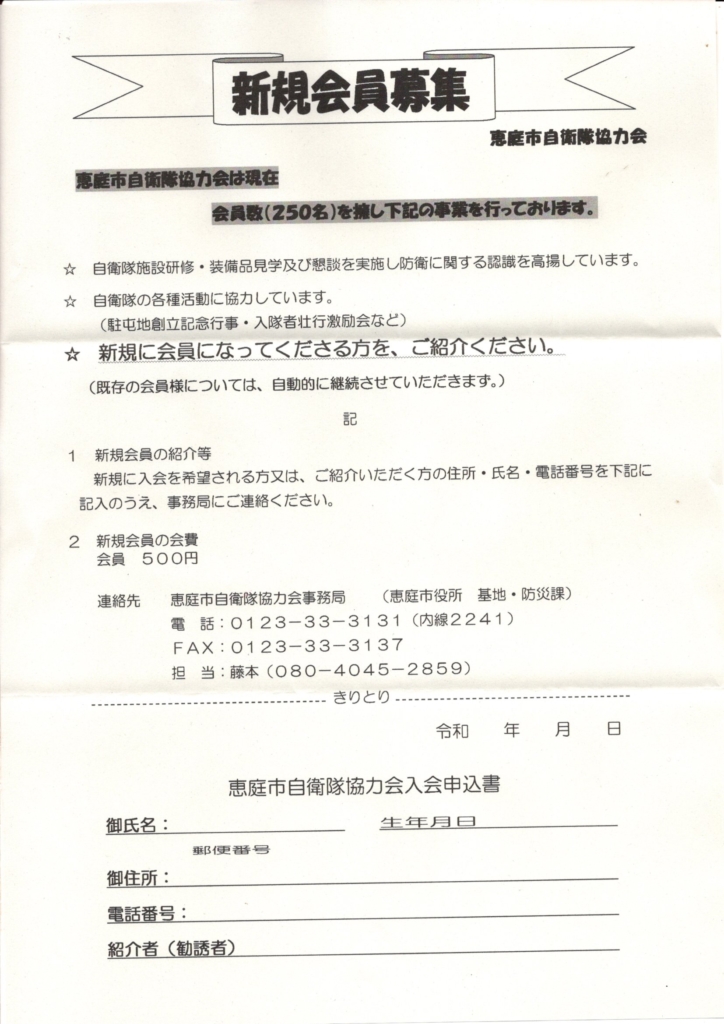 新規会員募集
恵庭市自衛隊協力会
恵庭市自衛隊協力会は現在
会員数（２５０名）を擁し下記の事業を行っております。
☆ 自衛隊施設研修・装備品見学及び懇談を実施し防衛に関する認識を高揚しています。
☆ 自衛隊の各種活動に協力しています。
（駐屯地創立記念行事・入隊者壮行激励会など）
☆ 新規に会員になってくださる方を、ご紹介ください。
（既存の会員様については、自動的に継続させていただきまず。）
記
１ 新規会員の紹介等
新規に入会を希望される方又は、ご紹介いただく方の住所・氏名・電話番号を下記に
記入のうえ、事務局にご連絡ください。
２ 新規会員の会費
会員 ５００円
連絡先 恵庭市自衛隊協力会事務局 （恵庭市役所 基地・防災課）
電 話：０１２３－３３－３１３１（内線２２４１）
ＦＡＸ：０１２３－３３－３１３７
担 当：藤本（０８０－４０４５－２８５９）
きりとり
令和 年 月 日
恵庭市自衛隊協力会入会申込書
御氏名： 生年月日
郵便番号
御住所：
電話番号：
紹介者（勧誘者）